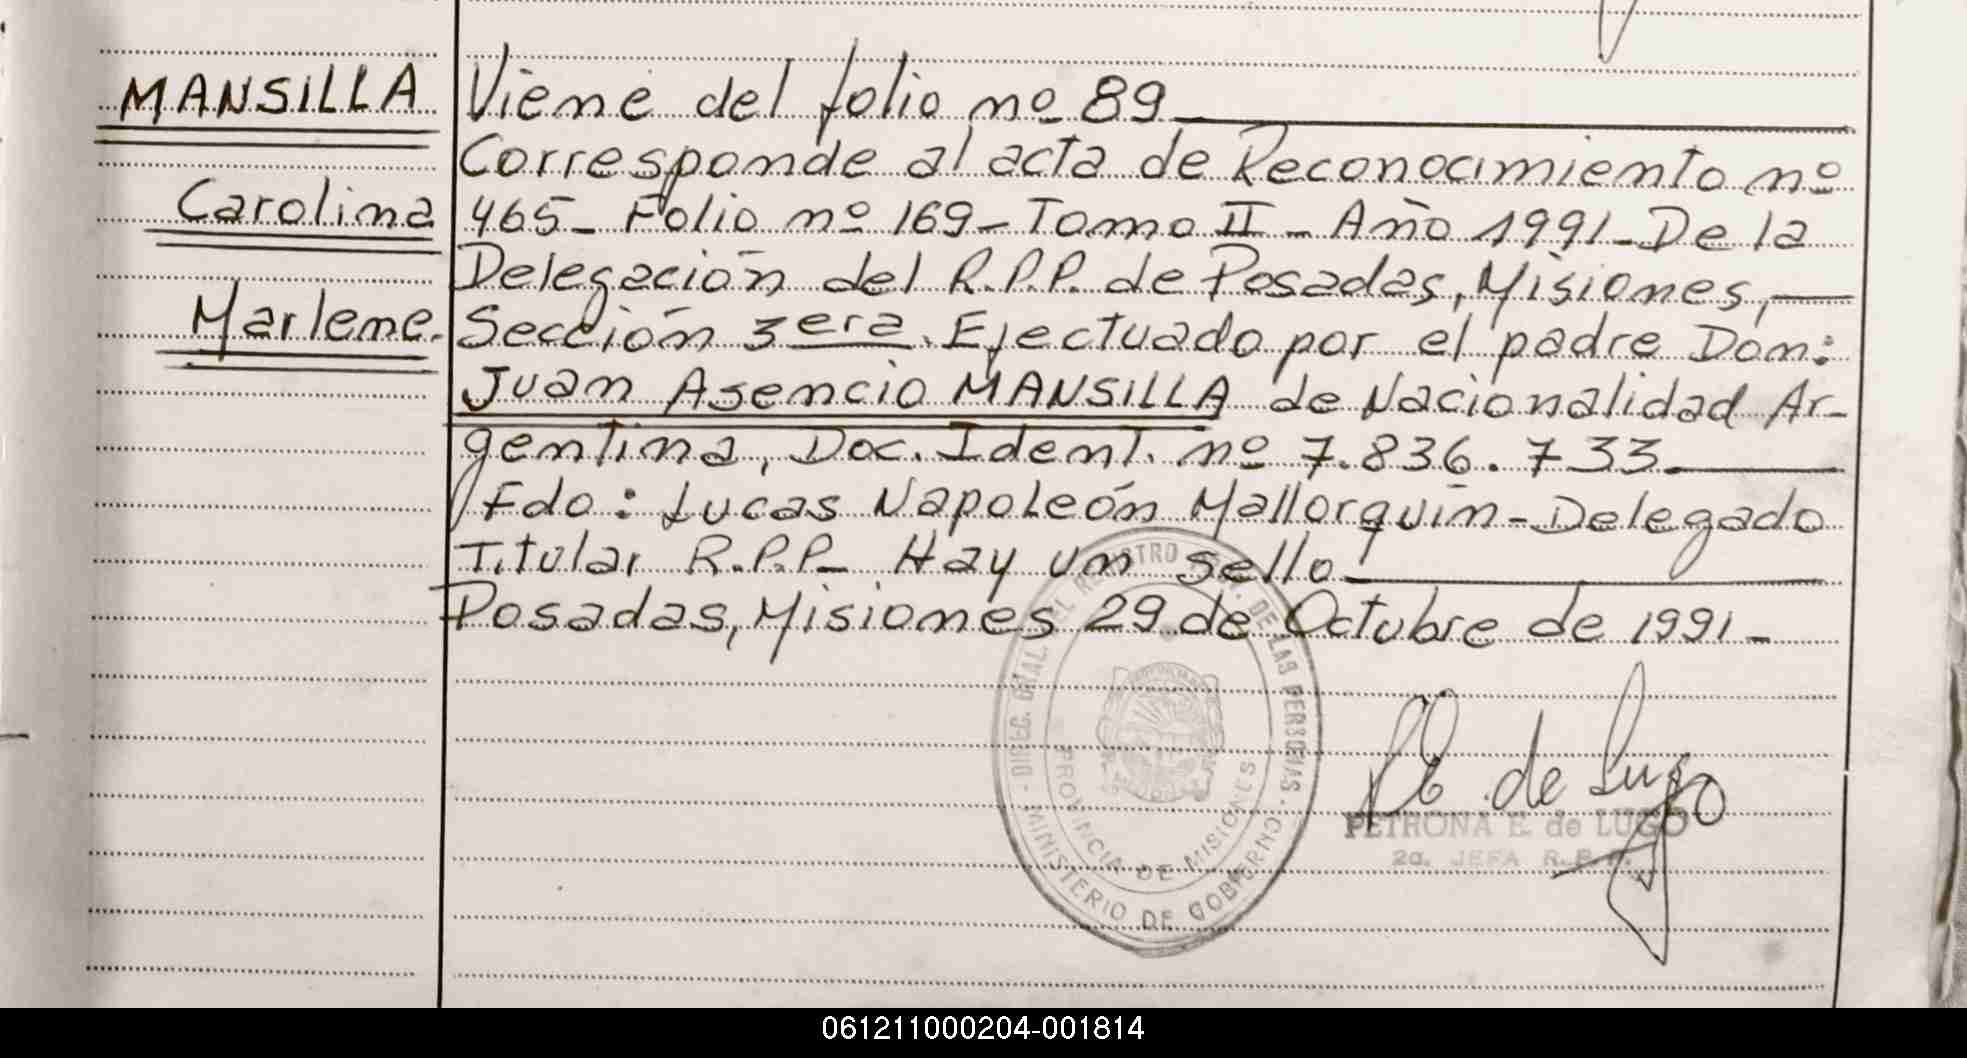 MANSILLA
Carolina
Marlene.
Viene del folio nº 89
Corresponde al acta de Reconocimiento nº
465 - Folio nº 169 - Tomo II - Año 1991 - De la
Delegación del R.P.P. de Posadas, Misiones,
Sección 3era. Efectuado por el padre Don:
Juan Asencio MANSILLA de Nacionalidad Ar-
gentina, Doc. Ident. nº 7.836.733.
Fdo: Lucas Napoleón Mallorquín - Delegado
Titular R.P.P. Hay un sello.
Posadas, Misiones 29 de Octubre de 1991 -
DIREC. GRAL. DEL REGISTRO DE LAS PERSONAS
MINISTERIO DE GOBIERNO
PROVINCIA DE MISIONES
de Lugo
PETRONA E. de LUGO
2a. JEFA R.P.P.
061211000204-001814